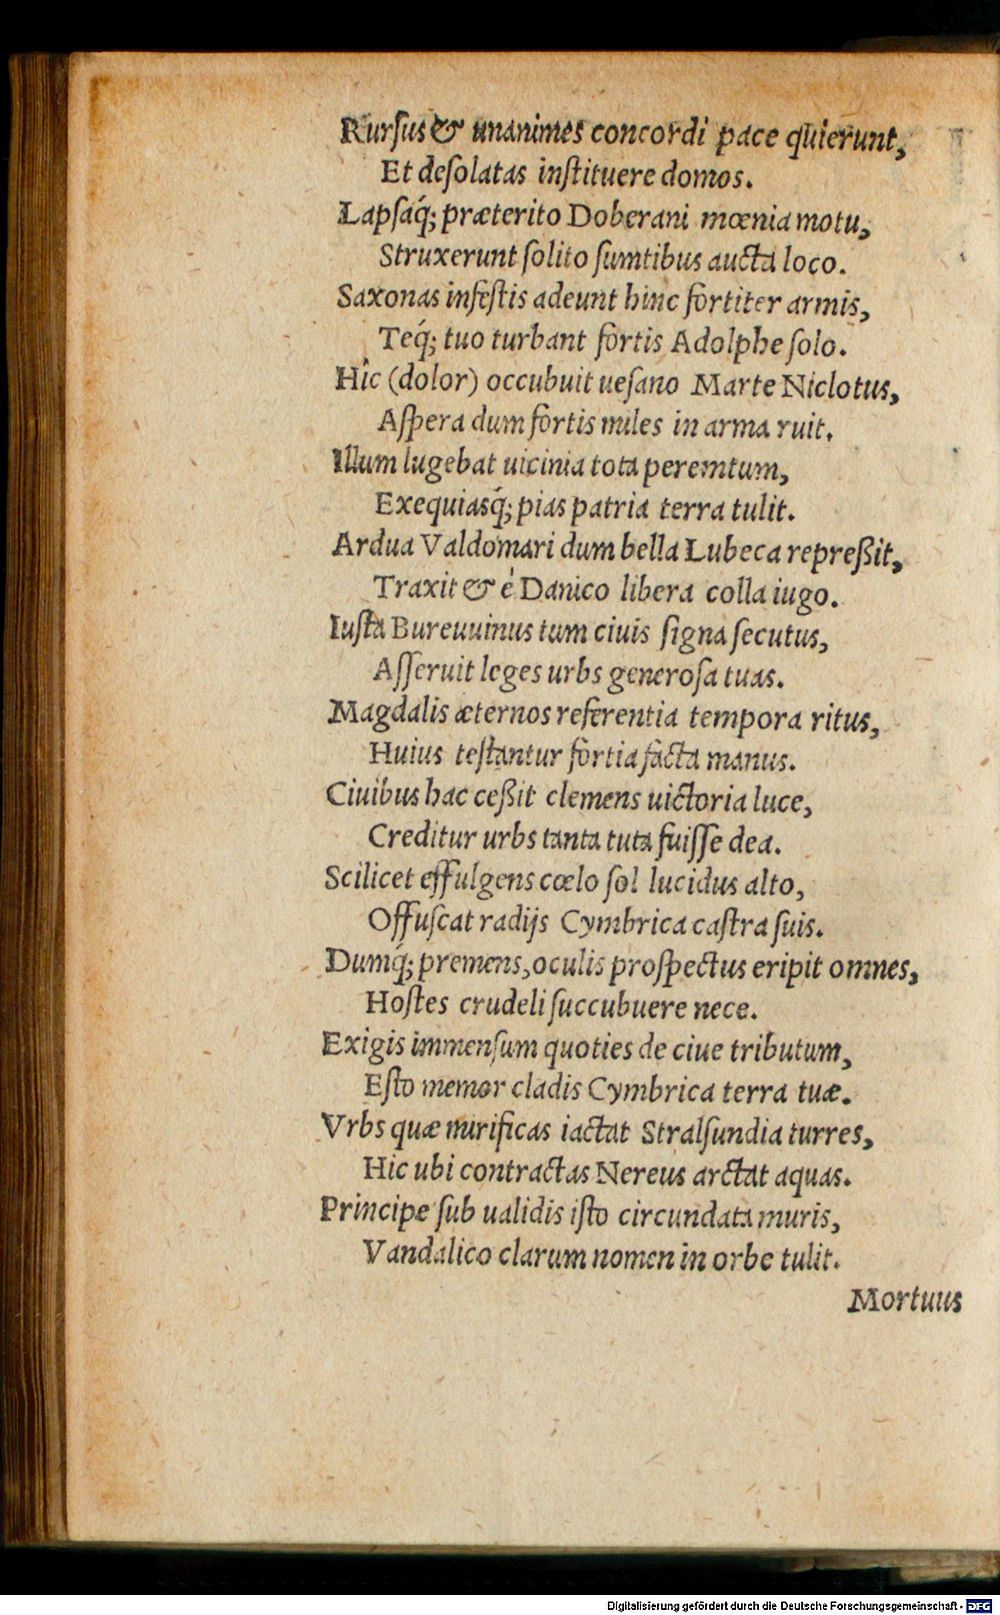 Rursus & unanimes concordi pace quierunt,
Et desolatas instituere domos.
Lapsaq́; præterito Doberani mœnia motu,
Struxerunt solito sumtibus aucta loco.
Saxonas infestis adeunt hinc fortiter armis,
Teq́; tuo turbant fortis Adolphe solo.
Hîc (dolor) occubuit uesano Marte Niclotus,
Aspera dum fortis miles in arma ruit.
Illum lugebat uicinia tota peremtum,
Exequiasq́; pias patria terra tulit.
Ardua Valdomari dum bella Lubeca repreßit,
Traxit & è Danico libera colla iugo.
Iusta Bureuuinus tum ciuis signa secutus,
Asseruit leges urbs generosa tuas.
Magdalis æternos referentia tempora ritus,
Huius testantur fortia facta manus.
Ciuibus hac ceßit clemens uictoria luce,
Creditur urbs tanta tuta fuisse dea.
Scilicet effulgens cœlo sol lucidus alto,
Offuscat radijs Cymbrica castra suis.
Dumq́; premens, oculis prospectus eripit omnes,
Hostes crudeli succubuere nece.
Exigis immensum quoties de ciue tributum,
Esto memor cladis Cymbrica terra tuæ.
Vrbs quæ mirificas iactat Stralsundia turres,
Hic ubi contractas Nereus arctat aquas.
Principe sub ualidis isto circundata muris,
Vandalico clarum nomen in orbe tulit.
Mortuus
Digitalisierung gefördert durch die Deutsche Forschungsgemeinschaft - DFG